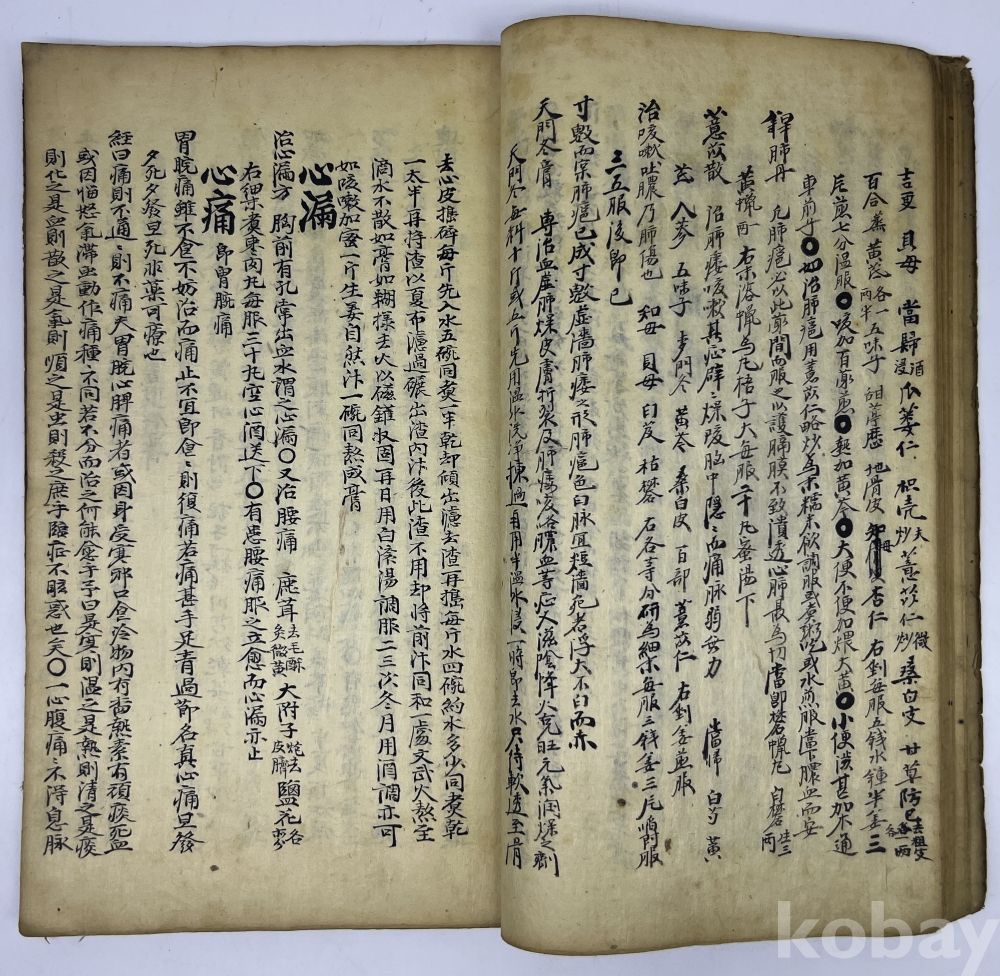 吉更 貝母 當歸酒浸 瓜蔞仁 枳壳夫炒 薏苡仁微炒 桑白皮 甘草 防己去粗皮各一兩
百合蒸 黃茂各一兩半 五味子 甜葶藶 地骨皮 知母 杏仁 右剉每服五錢水鍾半姜三
片煎七分溫服○咳加百 煎○熱加黃芩○大便不便加煨大黃○小便澁甚加木通
車前子○一切治肺癰用薏苡仁略炒為末糯米飲調服或煑粥吃或水煎服當下膿血而安
肺丹 凡肺癰必以此 間而服之以護膈膜不致潰透心肺最為切當卽礬蠟丸 白礬生三兩
黃蠟一兩 右末溶蠟為丸梧子大每服二十丸蜜湯下
薏苡散 治肺痿咳嗽 心 燥咳胸中隱隱而痛脉弱無力 當歸 白芍 黃
芪 人參 五味子 麥門冬 黃芩 桑白皮 百部 薏苡仁 右剉姜煎服
治咳嗽吐膿乃肺傷也 知母 貝母 白芨 枯礬 右各等分研為細末每服三錢姜三片 服
三五服後卽已
寸數而實肺癰已成寸數虛濇肺痿之形肺癰色白脉宜短濇死者浮大不白而赤
天門冬膏 專治血虛肺燥皮膚折裂及肺痿咳咯膿血等症大滋陰降火 旺元氣潤燥之劑
天門冬每料十斤或五斤先用溫水洗淨揀過再用半溫水浸一時卽去水只待軟透至骨
去心皮搗碎每斤先入水五碗同煑一半乾却傾出濾去渣再搗每斤水四碗約水多少同煑乾
一太半再持渣以夏布濾過碾出渣內汁後此渣不用却將前汁同和一處文武火熬至
滴水不散如膏如糊樣去火以磁鑵收固再日用白滚湯調服二三次冬月用酒調亦可
如咳嗽加蜜一斤生姜自然汁一碗同熬成膏
心漏
治心漏方 胸前有孔常出血水謂之心漏○又治腰痛 鹿茸去毛酥炙微黃 大附子炮去皮臍 鹽花各 分
右細末煑棗肉丸每服三十丸空心酒送下○有患腰痛服之立愈而心漏亦止
心痛 卽胃脘痛
胃脘痛雖不食不妨治而痛止不宜卽食食則復痛若痛甚手足青過節名真心痛旦發
夕死夕發旦死非藥可療也
經曰痛則不通通則不痛夫胃脘心脾痛者或因身受寒邪口食冷物內有畜熱素有頑痰死血
或因惱怒氣滯虫動作痛種種不同若不分而治之何能愈乎子曰是寒則溫之是熱則清之是痰
則化之是血則散之是氣則順之是虫則殺之庶乎臨症不眩惑也矣○一心腹痛痛不得息脉